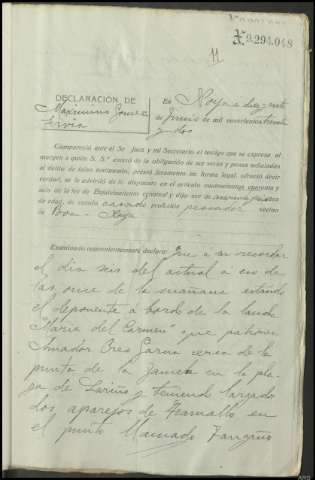 X.9.294.048
11
DECLARACIÓN DE
Maximino Gomez
En Noya a diez
de Junio de mil novecientos treinta
y dos
Comparecio ante el Sr. Juez y mi Secretario el testigo que se expresa al
margen a quien S. S.ª enteró de la obligación de ser veraz y penas señaladas
al delito de falso testimonio, prestó juramento en forma legal, ofreció decir
verdad, se le advirtió de lo dispuesto en el artículo cuatrocientos
de la ley de Enjuiciamiento criminal y dijo ser de
de edad, de estado casado profesión pescador vecino
de Noya
Examinado convenientemente declara: Que a su recordar
el dia seis del actual a eso de
las once de la mañana estando
el deponente á bordo de la lancha
"Maria del Carmen" que patronea
Amador Cres Garcia cerca de la
punta de la en la pla-
ya de Lariño y teniendo largado
dos aparejos de tramallo en
el punto